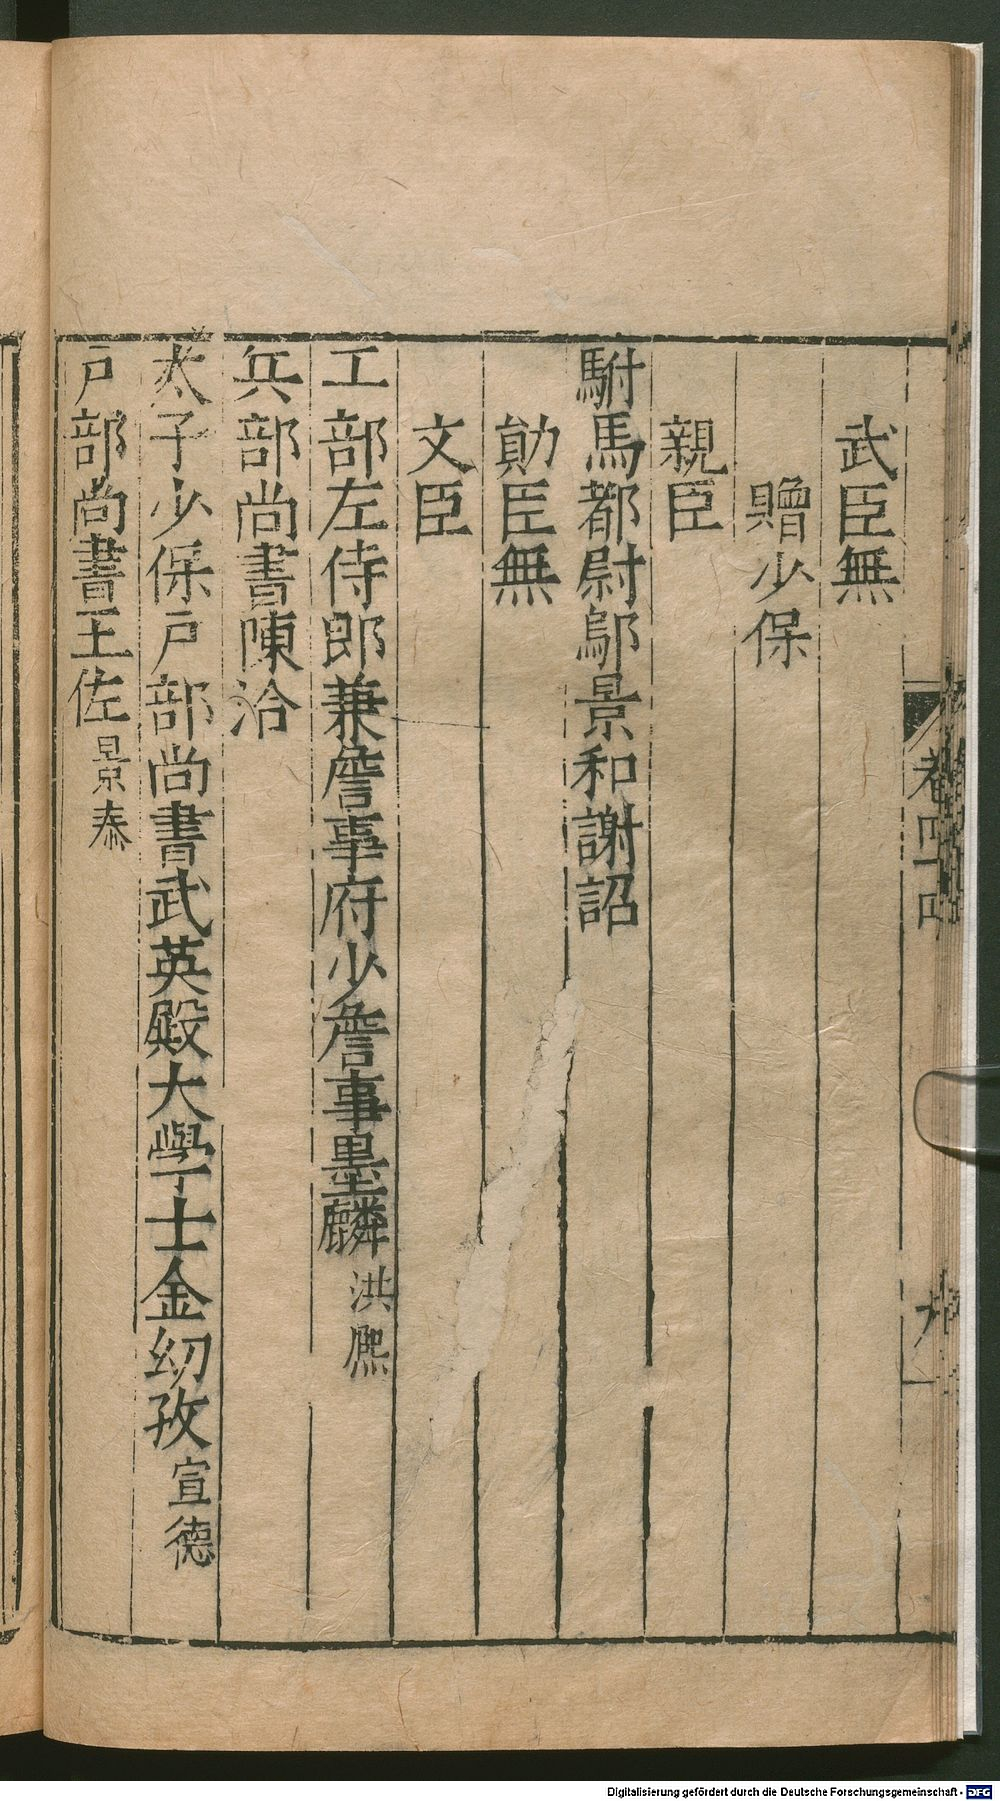 武臣無
贈少保
親臣
駙馬都尉鄔景和謝詔
勛臣無
文臣
工部左侍郎兼詹事府少詹事墨麟洪熈
兵部尚書陳洽
太子少保户部尚書武英殿大學士金幼孜宣德
户部尚書王佐景泰
卷四
Digitalisierung gefördert durch die Deutsche Forschungsgemeinschaft - DFG